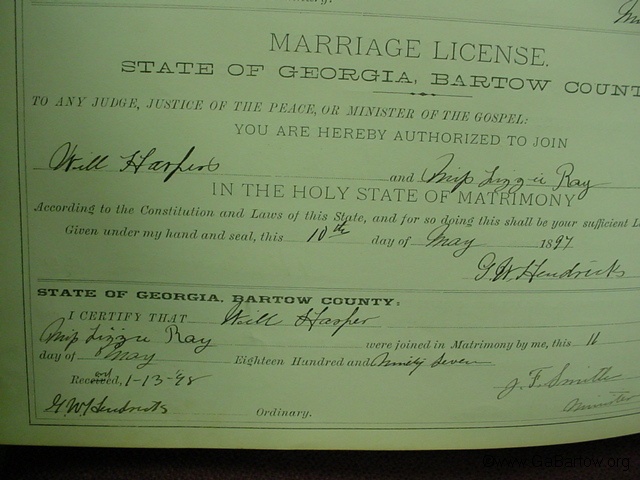 MARRIAGE LICENSE.
STATE OF GEORGIA, BARTOW COUNT
TO ANY JUDGE, JUSTICE OF THE PEACE, OR MINISTER OF THE GOSPEL:
YOU ARE HEREBY AUTHORIZED TO JOIN
Will Harper and Miss Lizzie Ray
IN THE HOLY STATE OF MATRIMONY
According to the Constitution and Laws of this State, and for so doing this shall be your sufficient L
Given under my hand and seal, this 10th day of May 1897
G.W. Hendricks
STATE OF GEORGIA, BARTOW COUNTY:
I CERTIFY THAT Will Harper
Miss Lizzie Ray were joined in Matrimony by me, this 11
day of May Eighteen Hundred and Ninety Seven
Received, 1-13-98
J. F. Smith
Minister
G.W. Hendricks Ordinary.
www.GaBartow.org